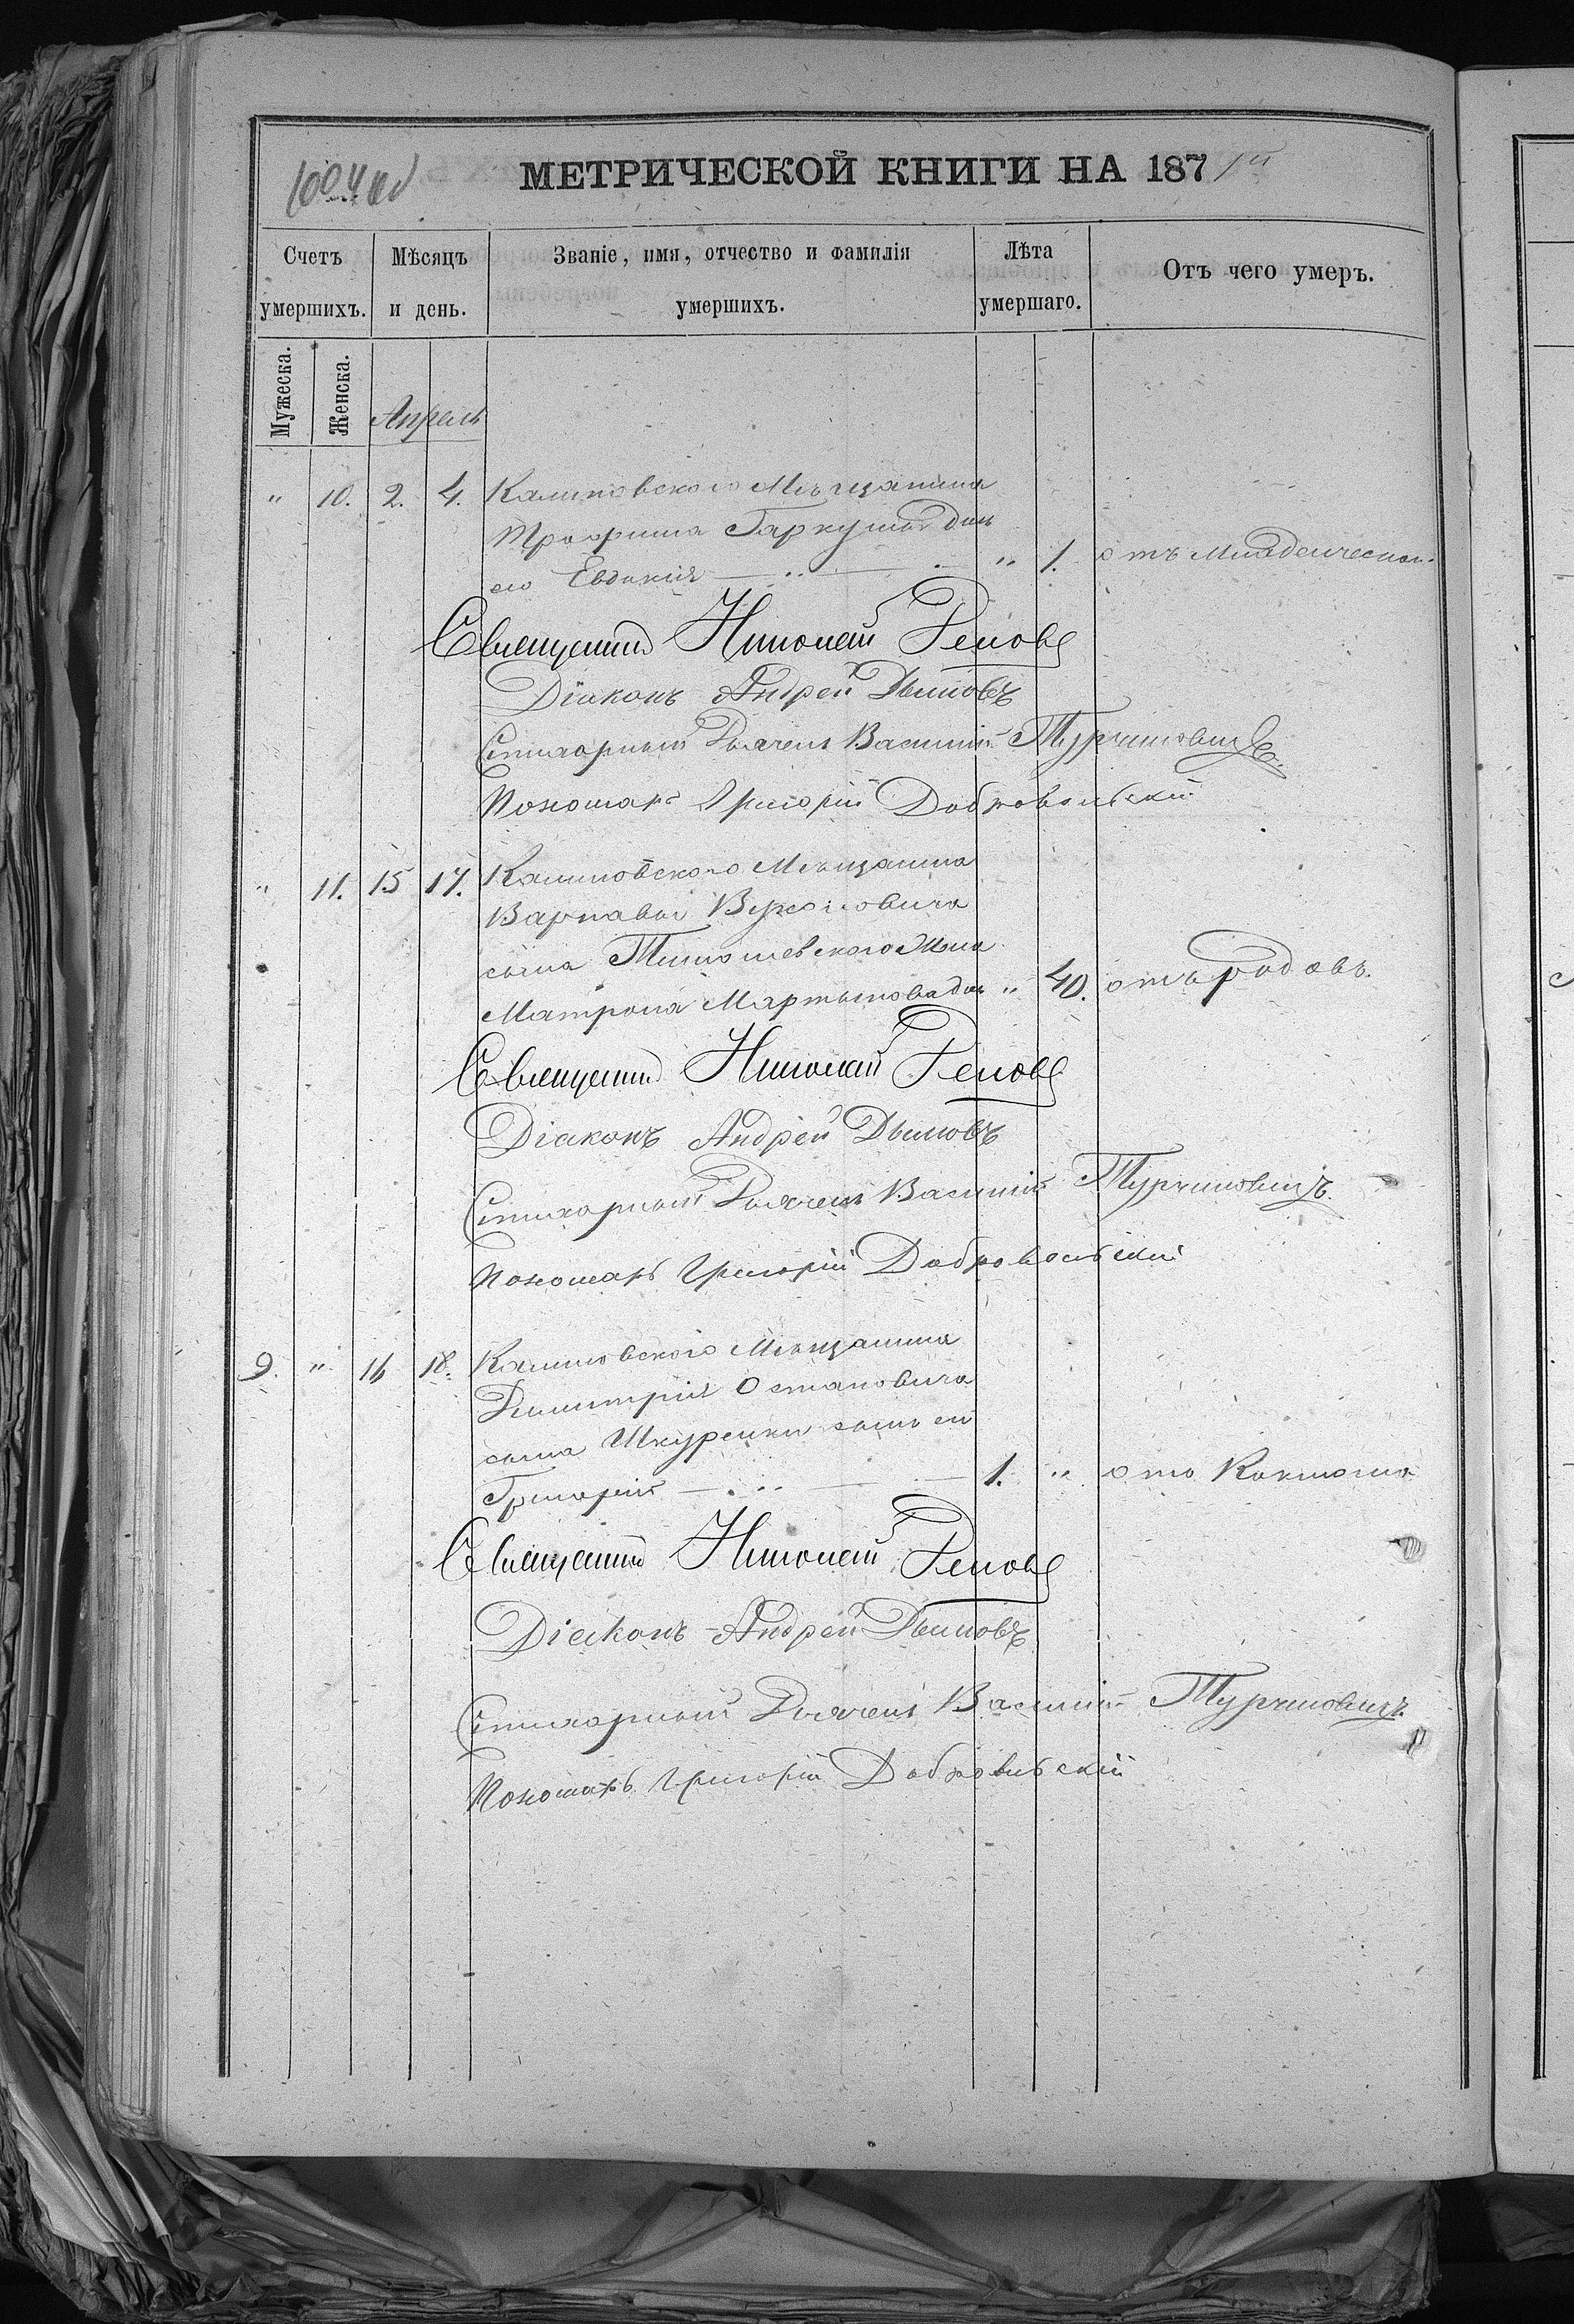 1004 об
МЕТРИЧЕСКОЙ КНИГИ НА 1871й
Счетъ умершихъ.
Мѣсяцъ и день.
Званіе, имя, отчество и фамилія умершихъ.
Лѣта умершаго.
Отъ чего умеръ.
Мужеска.
Женска.
Апрель
" 10. 2. 4. Калиновского Мѣщанина
Трофима Гаркуши дочь
его Евдокія " 1. отъ младенческой
Священникъ Николай
Діаконъ Андрей Дымовъ
Стихарный Дьячекъ Василій Турчиновичъ
Пономарь Григорій Добровольскій
" 11. 15 17. Калиновского Мѣщанина
Варнавы
сына жена
Матрона Мартынова дочь " 40. отъ родовъ.
Священникъ Николай
Діаконъ Андрей Дымовъ
Стихарный Дьячекъ Василій Турчиновичъ.
Пономарь Григорій Добровольскій
9. " 16 18. Калиновского Мѣщанина
Димитрія Остаповича
сына Шкуренки сынъ его
Григорій 1. " отъ Коклюша
Священникъ Николай
Діаконъ Андрей Дымовъ
Стихарный Дьячекъ Василій Турчиновичъ.
Пономарь Григорій Добровольскій